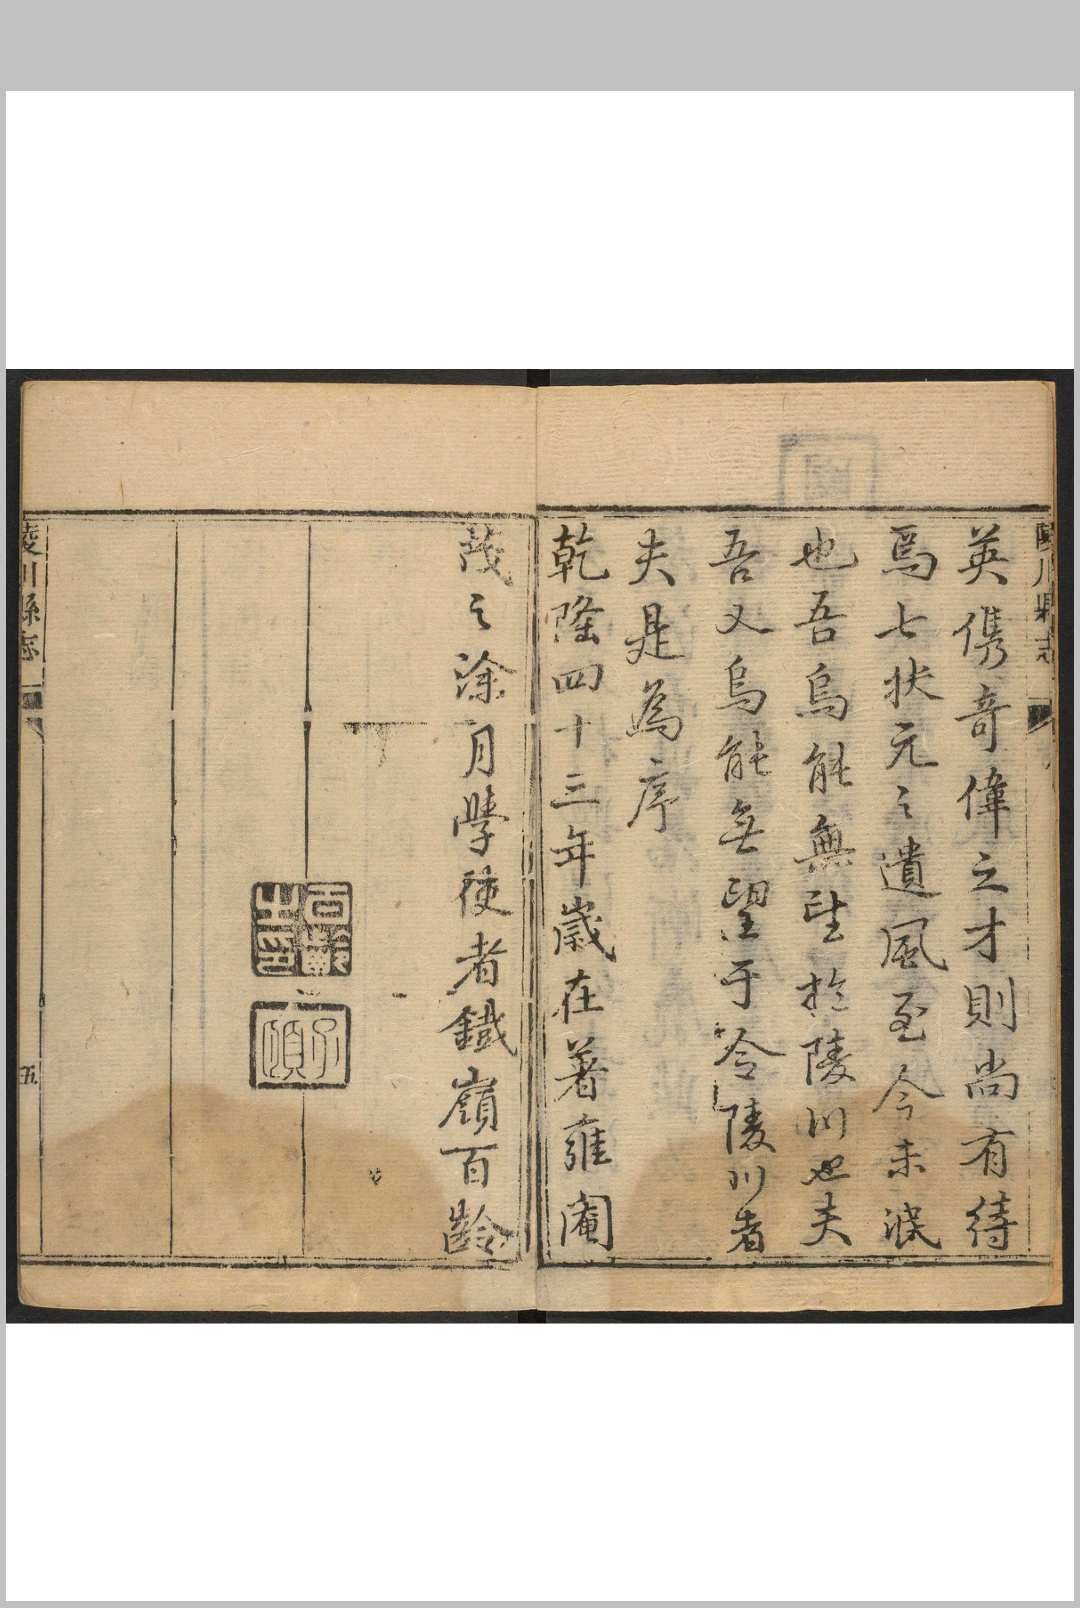 英儁奇偉之才則尚有待
焉七狀元之遺風至今未泯
也吾烏能無望於陵川也夫
吾又烏能無望于令陵川者
夫是為序
乾隆四十三年歲在著雍閹
茂之涂月學使者鐵嶺百齡
百齡之印
子頤
陵川縣志
五